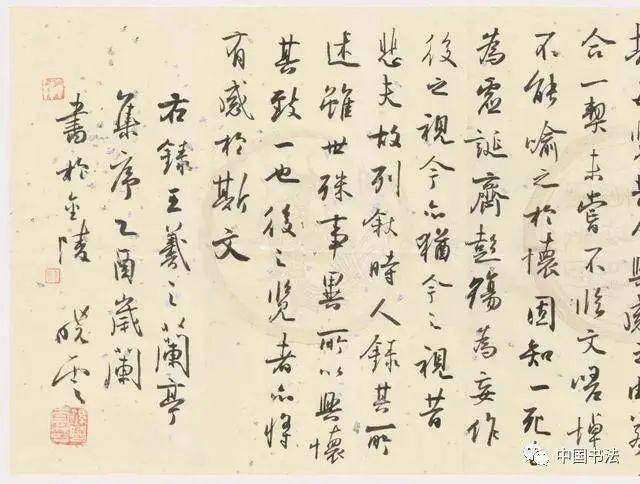 昔人興感之由若
合一契未嘗不臨文嗟悼
不能喻之於懷固知一死
為虛誕齊彭殤為妄作
後之視今亦猶今之視昔
悲夫故列敘時人錄其所
述雖世殊事異所以興懷
其致一也後之覽者亦將
有感於斯文
右錄王羲之蘭亭
集序乙酉歲蘭
書於金陵 曉雲
中国书法